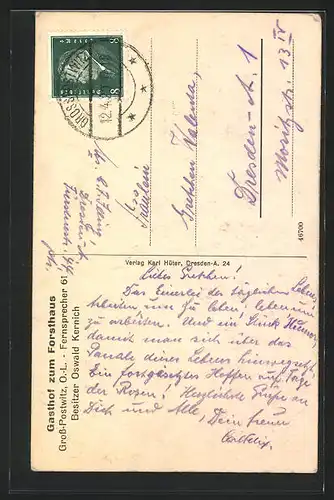 8 8
GROSS
12.4.
Fräulein
Gretchen
Dresden-A. 1
Moritzstr. 13 IV
46700
Verlag Karl Hüter, Dresden-A. 24
Gasthof zum Forsthaus
Groß-Postwitz, O.-L. - Fernsprecher 61
Besitzer Oswald Kernich
Liebes Gretchen!
Das Einerlei des täglichen Lebens,
Arbeiten um zu leben, leben um
zu arbeiten. Und ein Stück Humor,
damit man sich über das
Banale dieses Lebens hinwegsetzt.
Ein fortgesetztes Hoffen auf Tage
der Rosen! Herzlichste Grüße an
Dich und Alle, Dein treuer